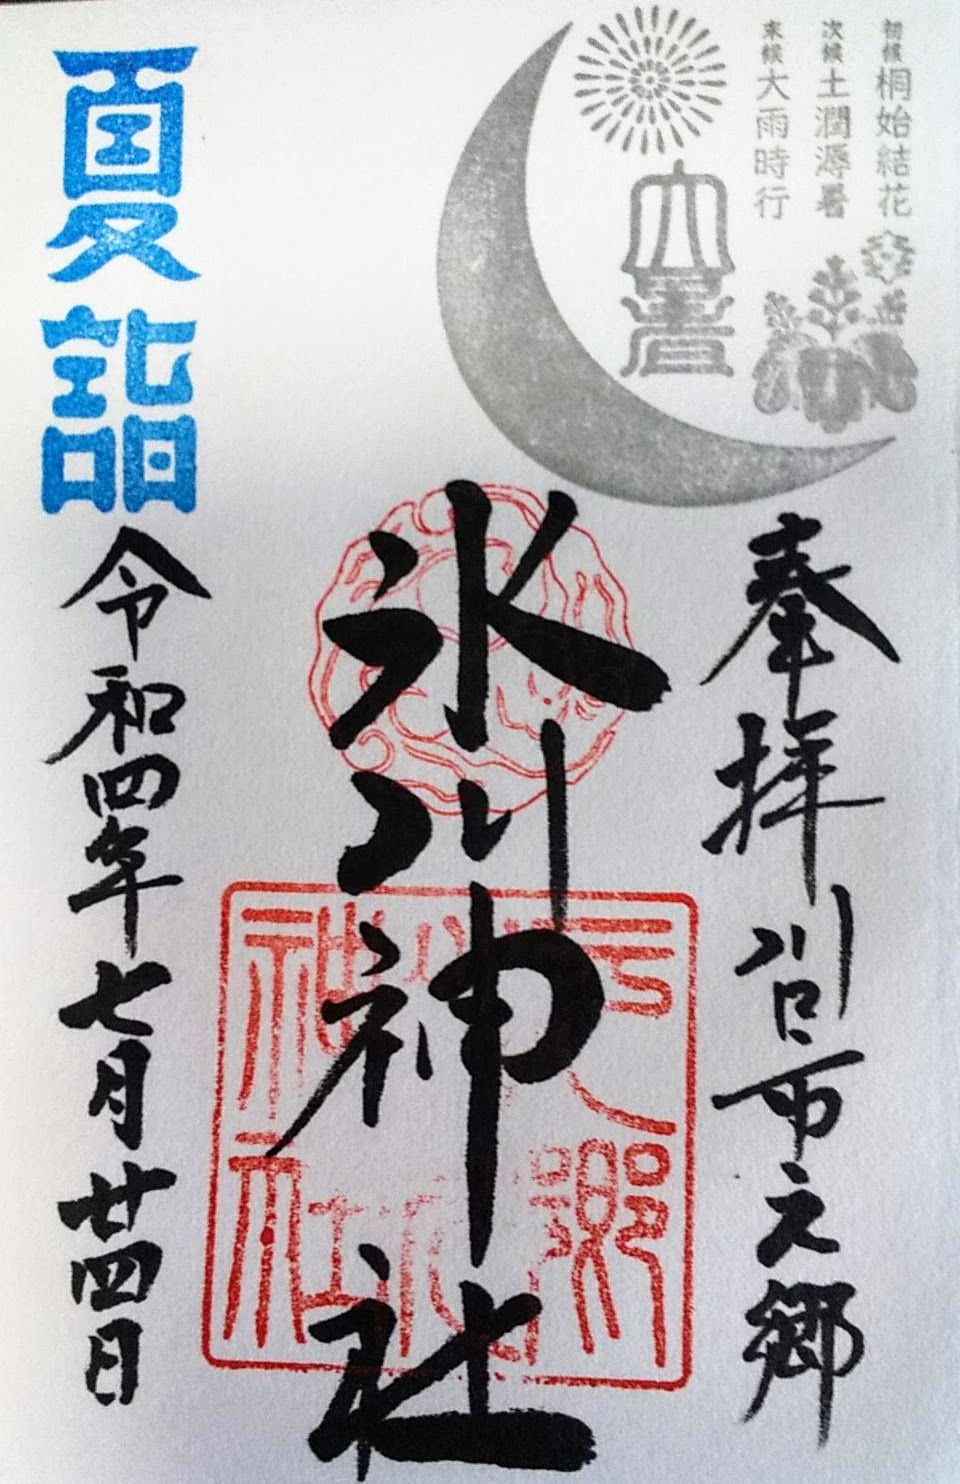 初候 桐始結花
次候 土潤溽暑
末候 大雨時行
大暑
奉拝 川口市元郷
氷川神社
夏詣
令和四年七月廿四日